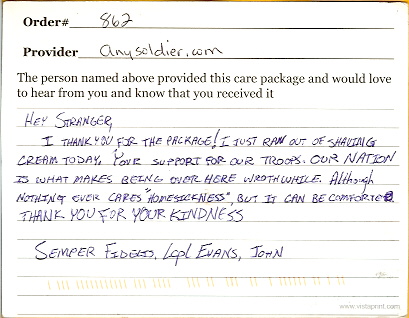 Order# 862
Provider anysoldier.com
The person named above provided this care package and would love
to hear from you and know that you received it
HEY STRANGER,
I THANK YOU FOR THE PACKAGE! I JUST RAN OUT OF SHAVING
CREAM TODAY. YOUR SUPPORT FOR OUR TROOPS. OUR NATION
IS WHAT MAKES BEING OVER HERE WROTHWHILE. Although
NOTHING EVER CARES "HOMESICKNESS", BUT IT CAN BE COMFORTED.
THANK YOU FOR YOUR KINDNESS
SEMPER FIDELIS, LCpl EVANS, JOHN
www.vistaprint.com